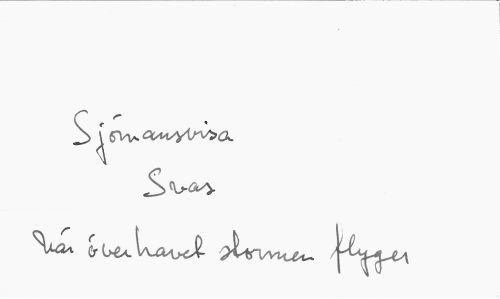 Sjómansvisa
Svas
När óver havet stormen flyger